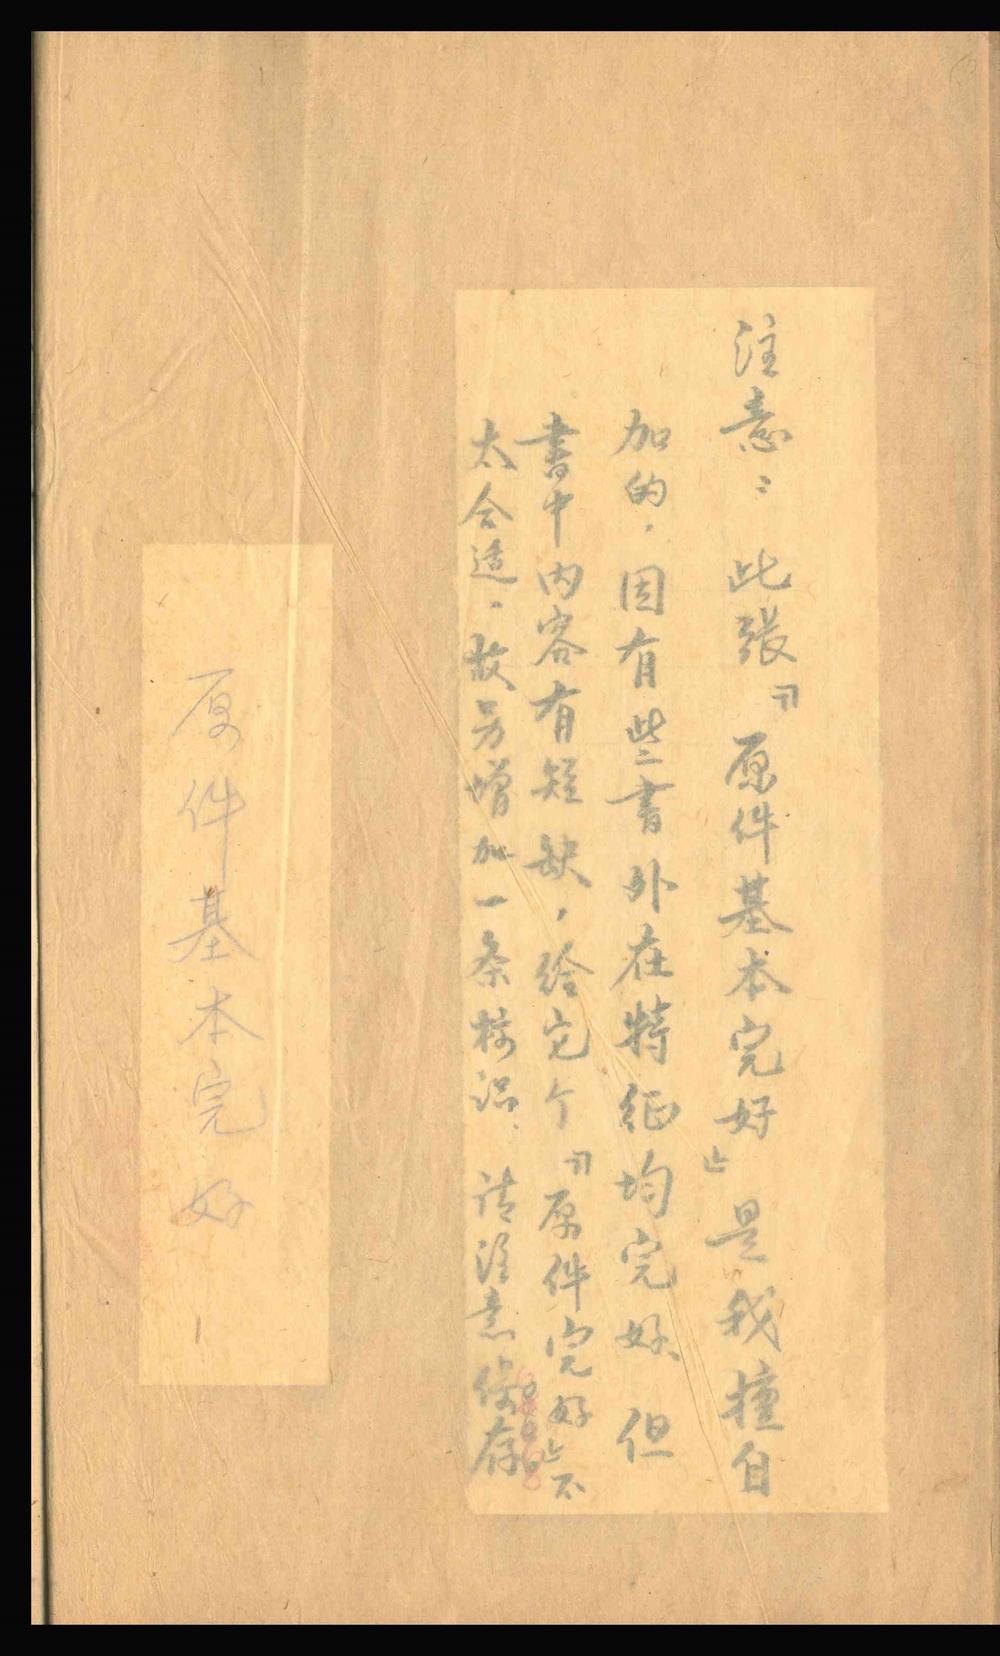 注意：此張『原件基本完好』是我擅自
加的，因有些書外在特征均完好，但
書中内容有短缺，给它个『原件完好』不
太合适，故另增加一条标识。请注意保存
原件基本完好